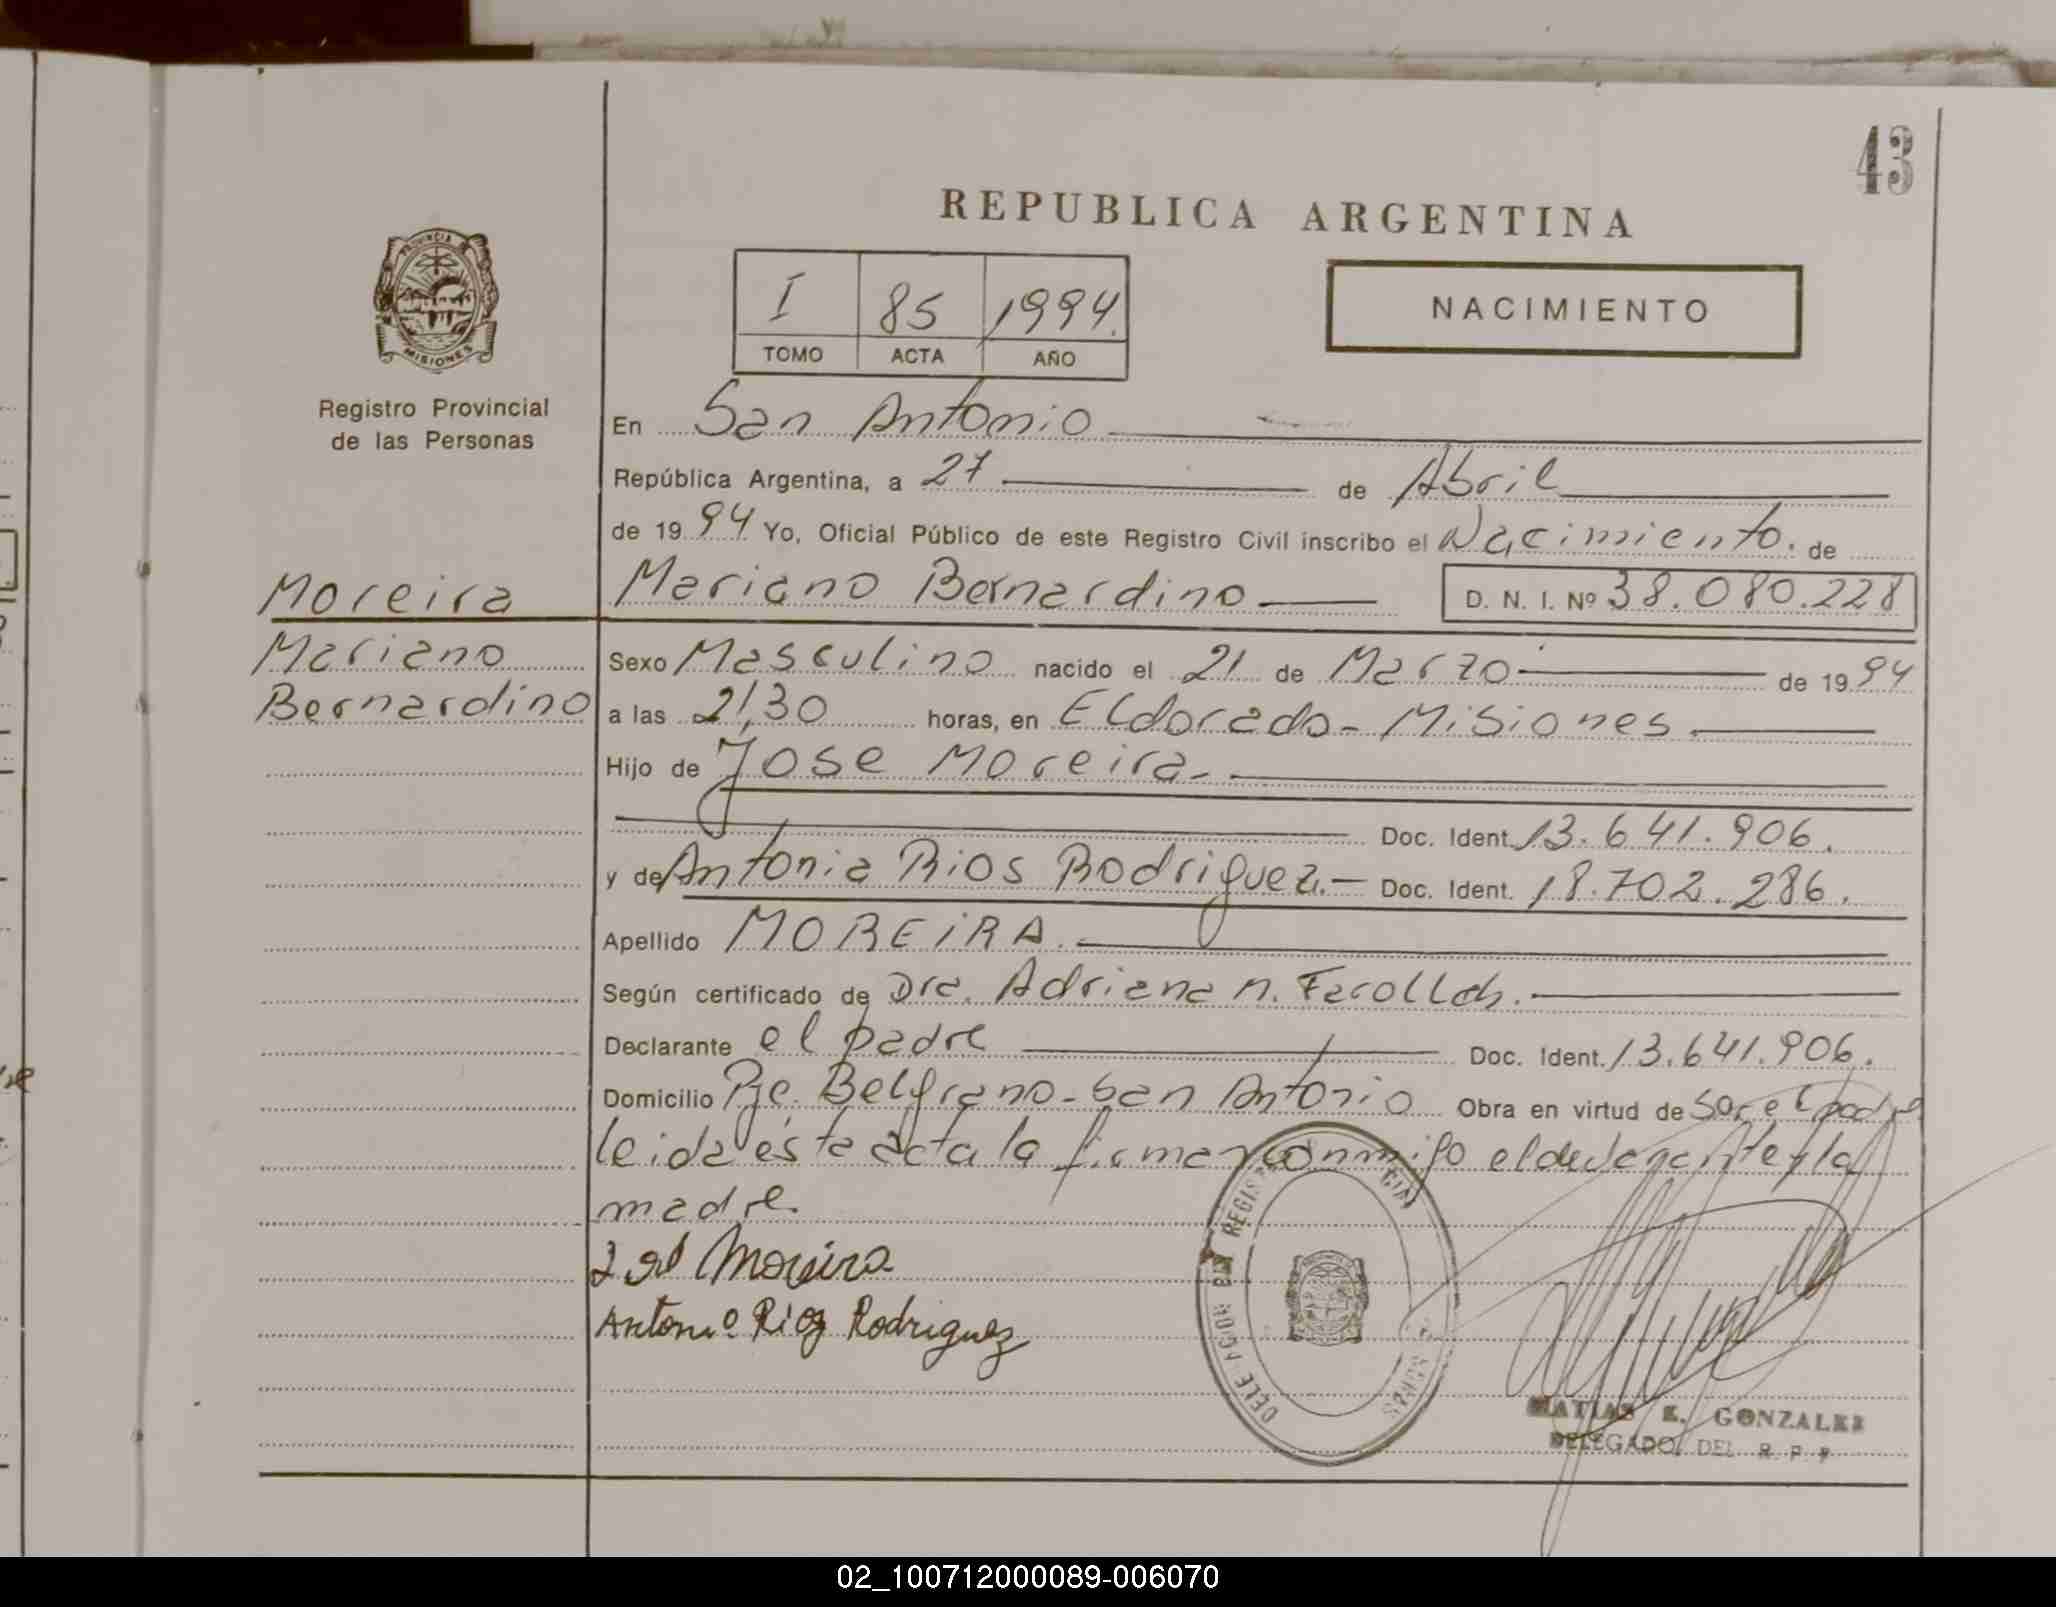 43
REPUBLICA ARGENTINA
I 85 1994.
TOMO ACTA AÑO
NACIMIENTO
PROVINCIA DE
MISIONES
Registro Provincial
de las Personas
En San Antonio
República Argentina, a 27 de Abril
de 1994 Yo, Oficial Público de este Registro Civil inscribo el Nacimiento. de
Moreira
Mariano
Bernardino
Mariano Bernardino D. N. I. Nº 38.080.228
Sexo Masculino nacido el 21 de Marzo de 1994
a las 21,30 horas, en Eldorado - Misiones.
Hijo de Jose Moreira.-
Doc. Ident. 13.641.906.
y de Antonia Rios Rodriguez.- Doc. Ident. 18.702.286.
Apellido MOREIRA.
Según certificado de Dra. Adriana N.
Declarante el padre Doc. Ident. 13.641.906.
Domicilio Pje. Belgrano - San Antonio Obra en virtud de Sor el padre
leida ésta acta la firman conmigo el y la
madre.
Moreira
Antonia Rios Rodriguez
MATIAS E. GONZALEZ
DELEGADO DEL R. P. P.
02_100712000089-006070